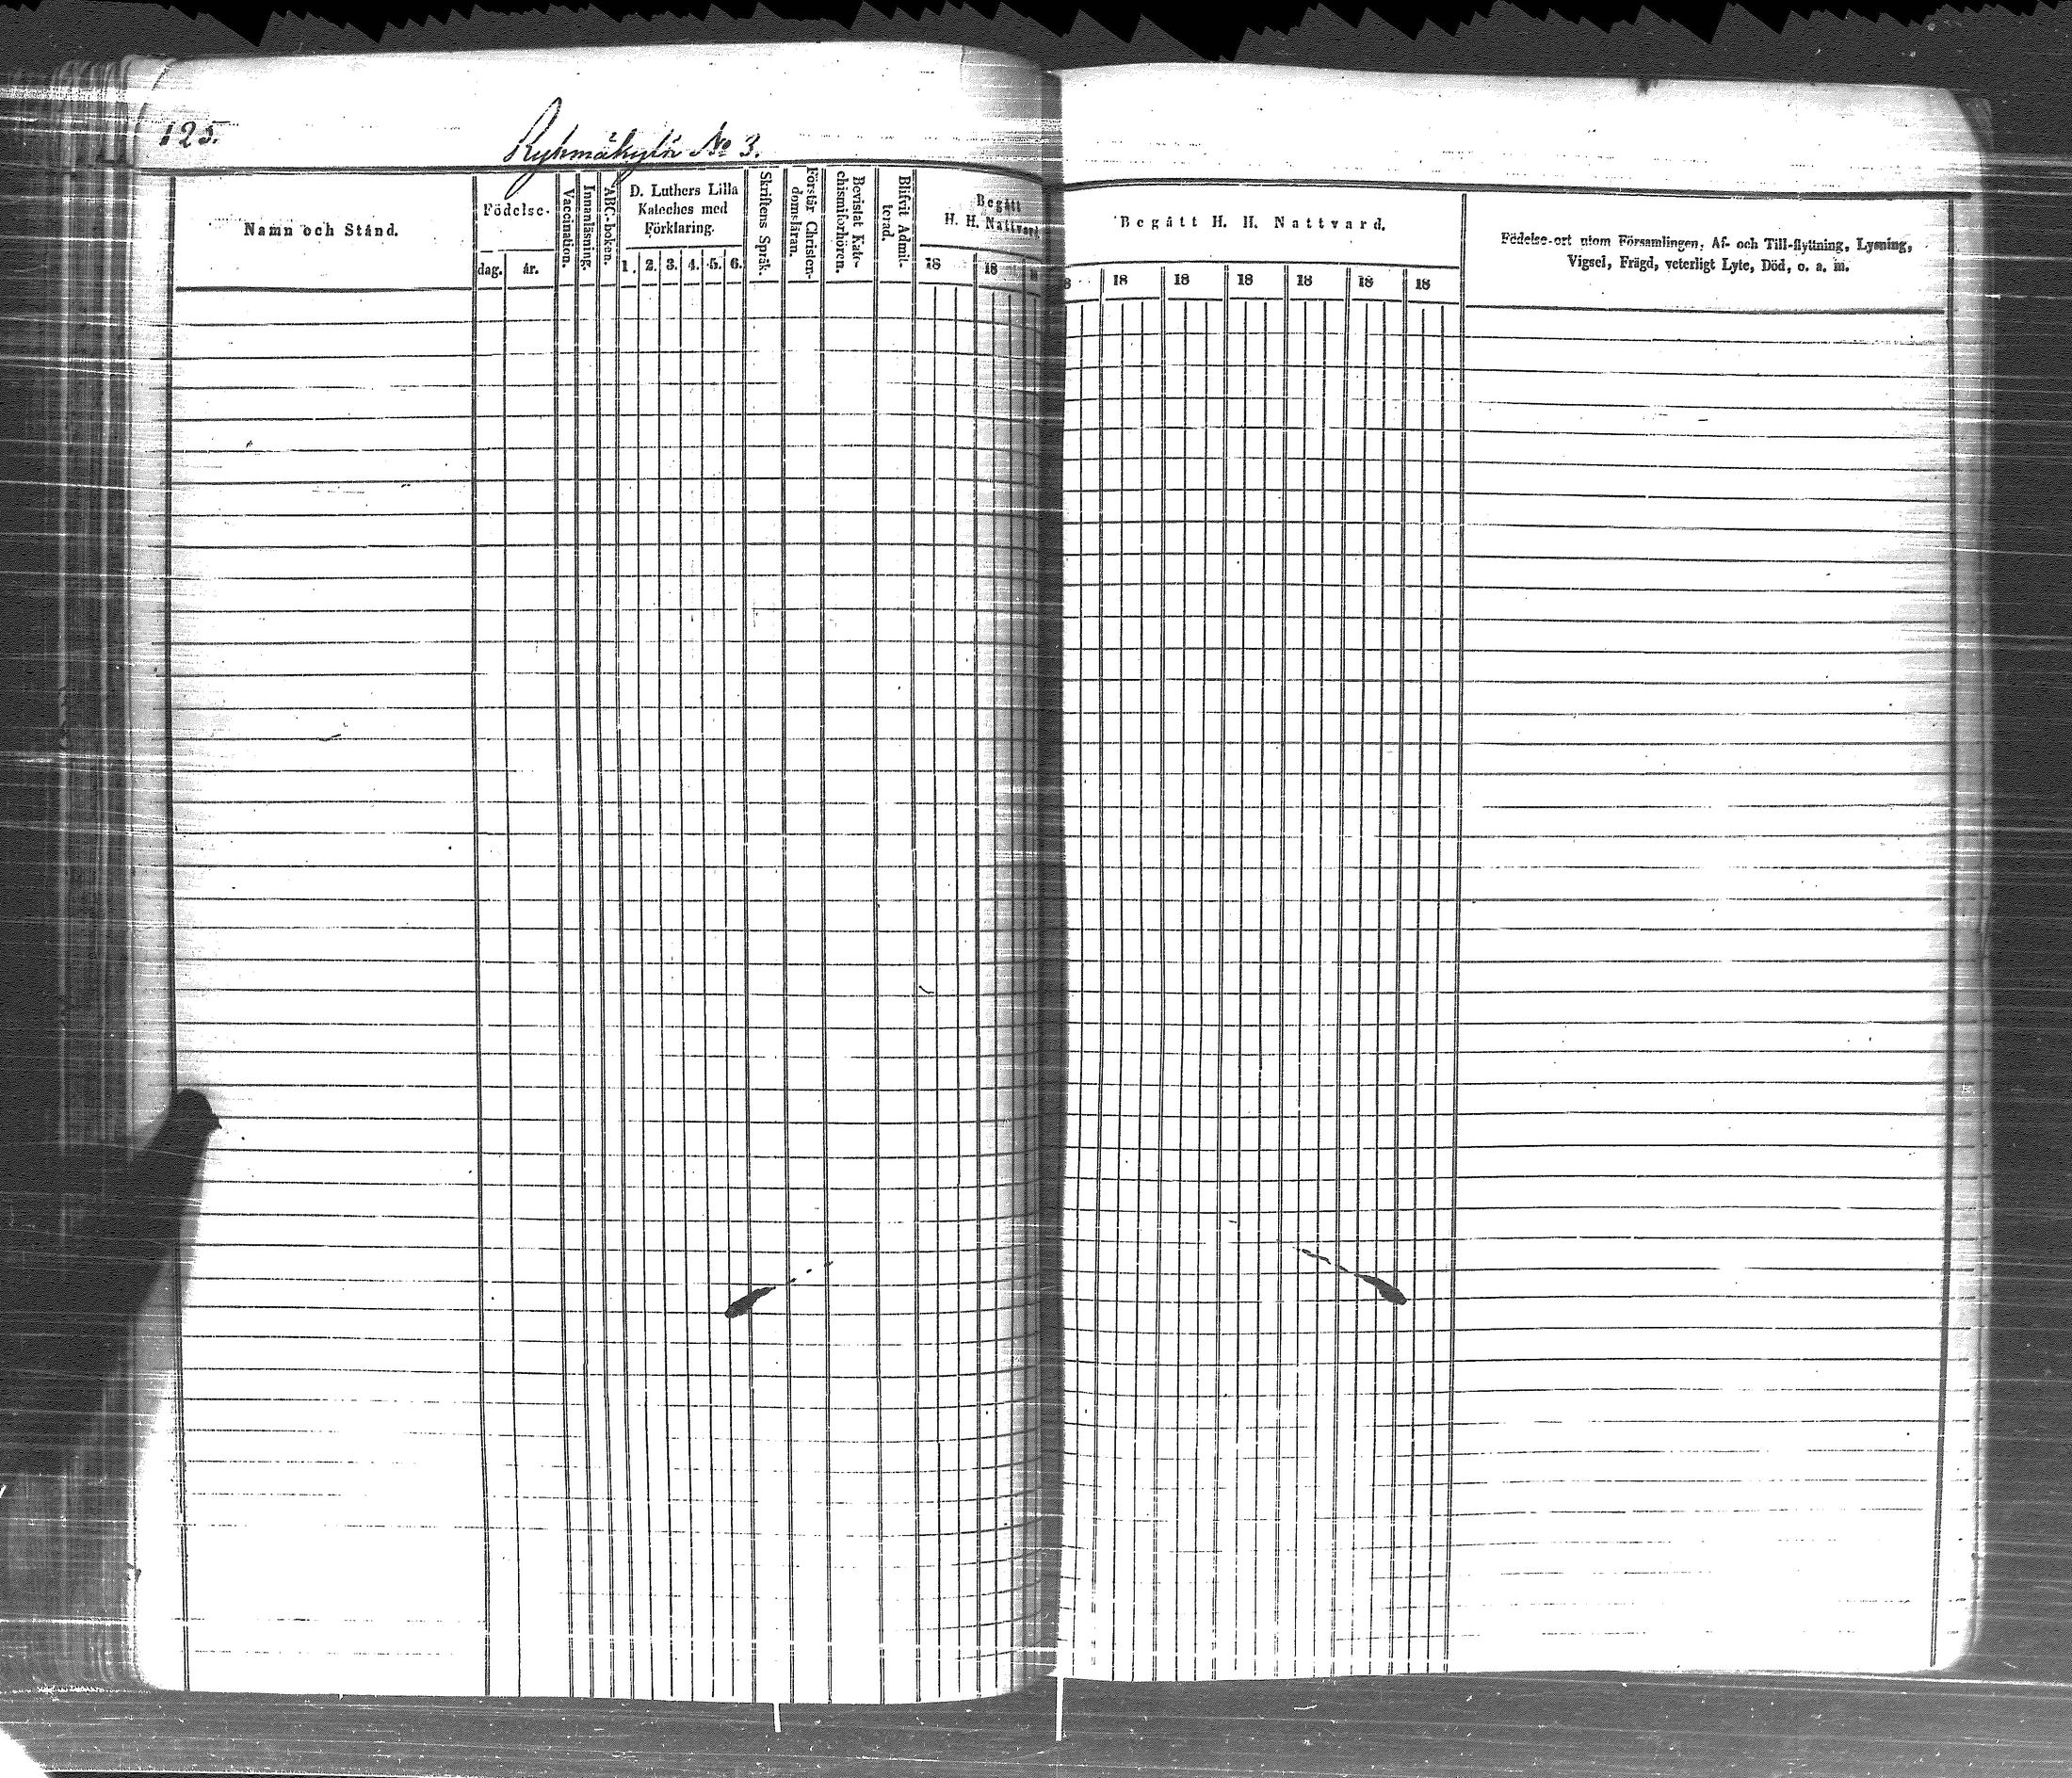 125.
Ryhmäkylä No 3.
Namn och Stånd.
Födelse-
dag.
år.
Vaccination.
Innanläsning.
ABC-boken.
D. Luthers Lilla
Kateches med
Förklaring.
1. 2. 3. 4. 5. 6.
Skriftens Språk.
Förstår Christen-
domsläran.
Bevistat Kate-
chismiförhören.
Blifvit Admit-
terad.
Begått
H. H. Nattvard.
18 18
Begått H. H. Nattvard.
18 18 18 18 18 18
Födelse-ort utom Församlingen, Af- och Till-flyttning, Lysning,
Vigsel, Frägd, veterligt Lyte, Död, o. a. m.